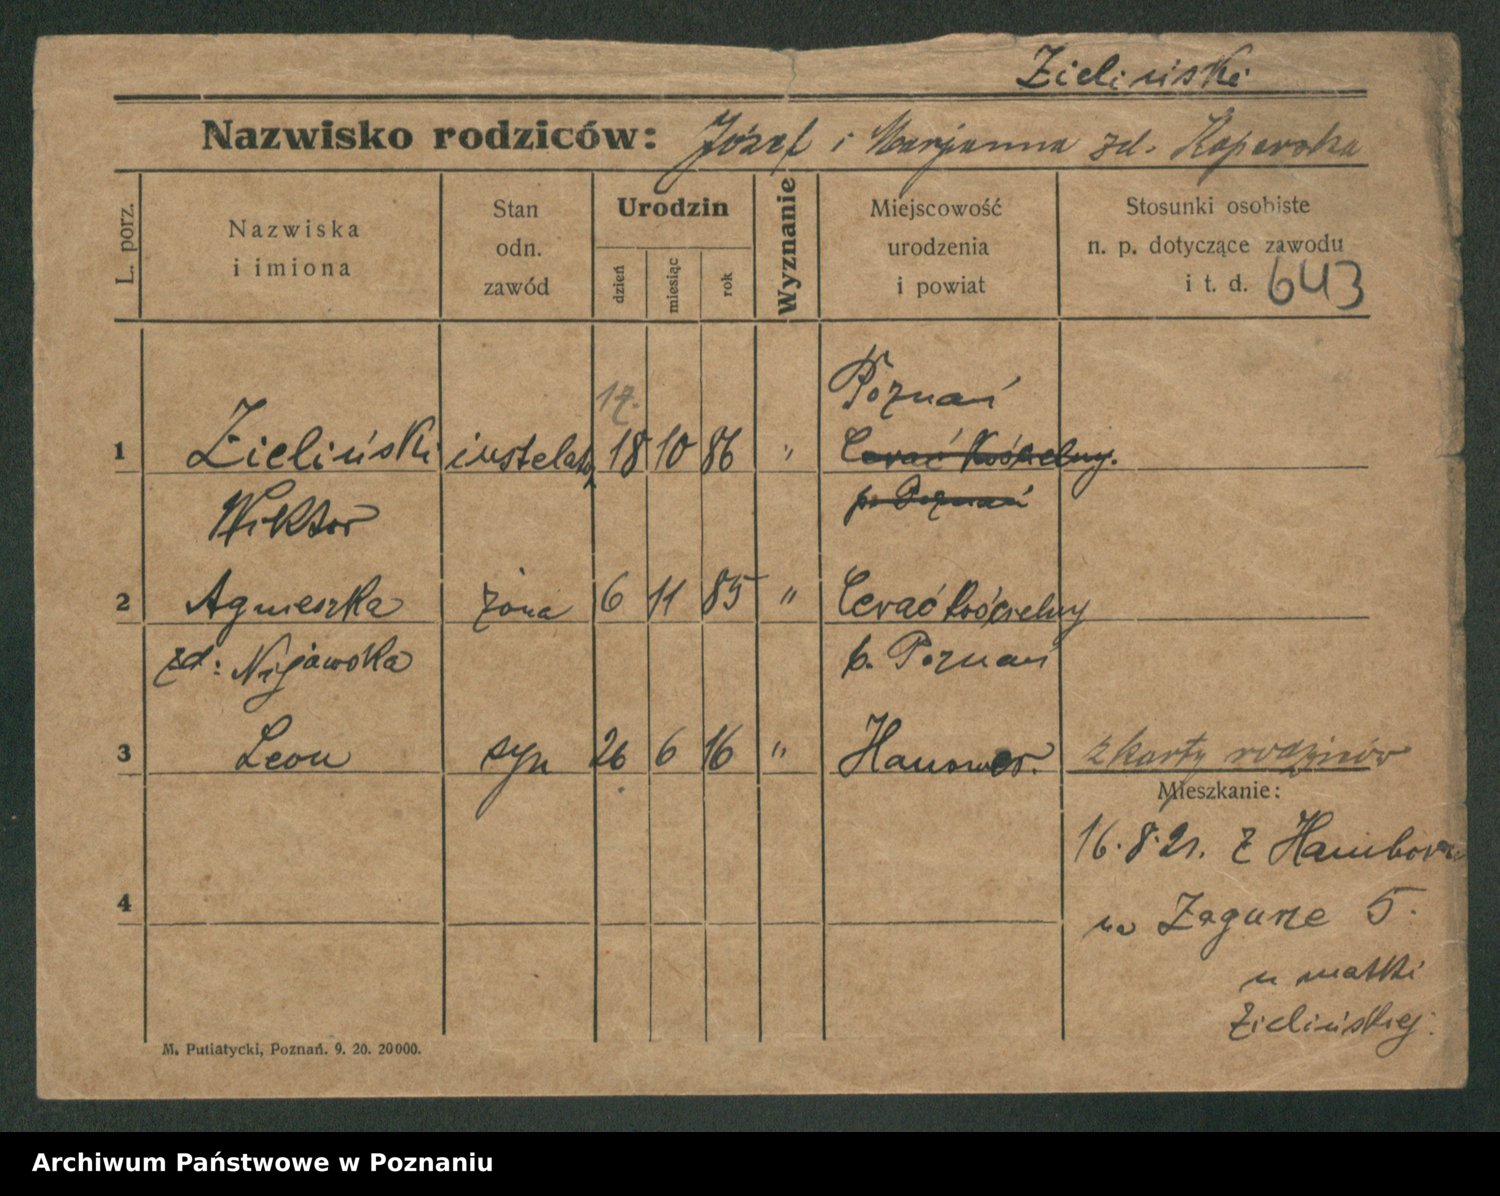 Zieliński
Nazwisko rodziców: Józef i Marjanna zd. Koperska
L. porz.
Nazwiska
i imiona
Stan
odn.
zawód
Urodzin
dzień
miesiąc
rok
Wyznanie
Miejscowość
urodzenia
i powiat
Stosunki osobiste
n. p. dotyczące zawodu
i t. d. 643
17.
Poznań
1 Zieliński instelator 18 10 86 " Cerać Kościelny.
Wiktor p. Poznań
2 Agnieszka żona 6 11 85 " Cerać Kościelny
zd: Nijawska b. Poznań
3 Leon syn 26 6 16 " Hanower. z karty rodziców
Mieszkanie:
16.8.21. z Hambor
4
na Zagurze 5.
u matki
Zielińskiej.
M. Putiatycki, Poznań. 9. 20. 20000.
Archiwum Państwowe w Poznaniu